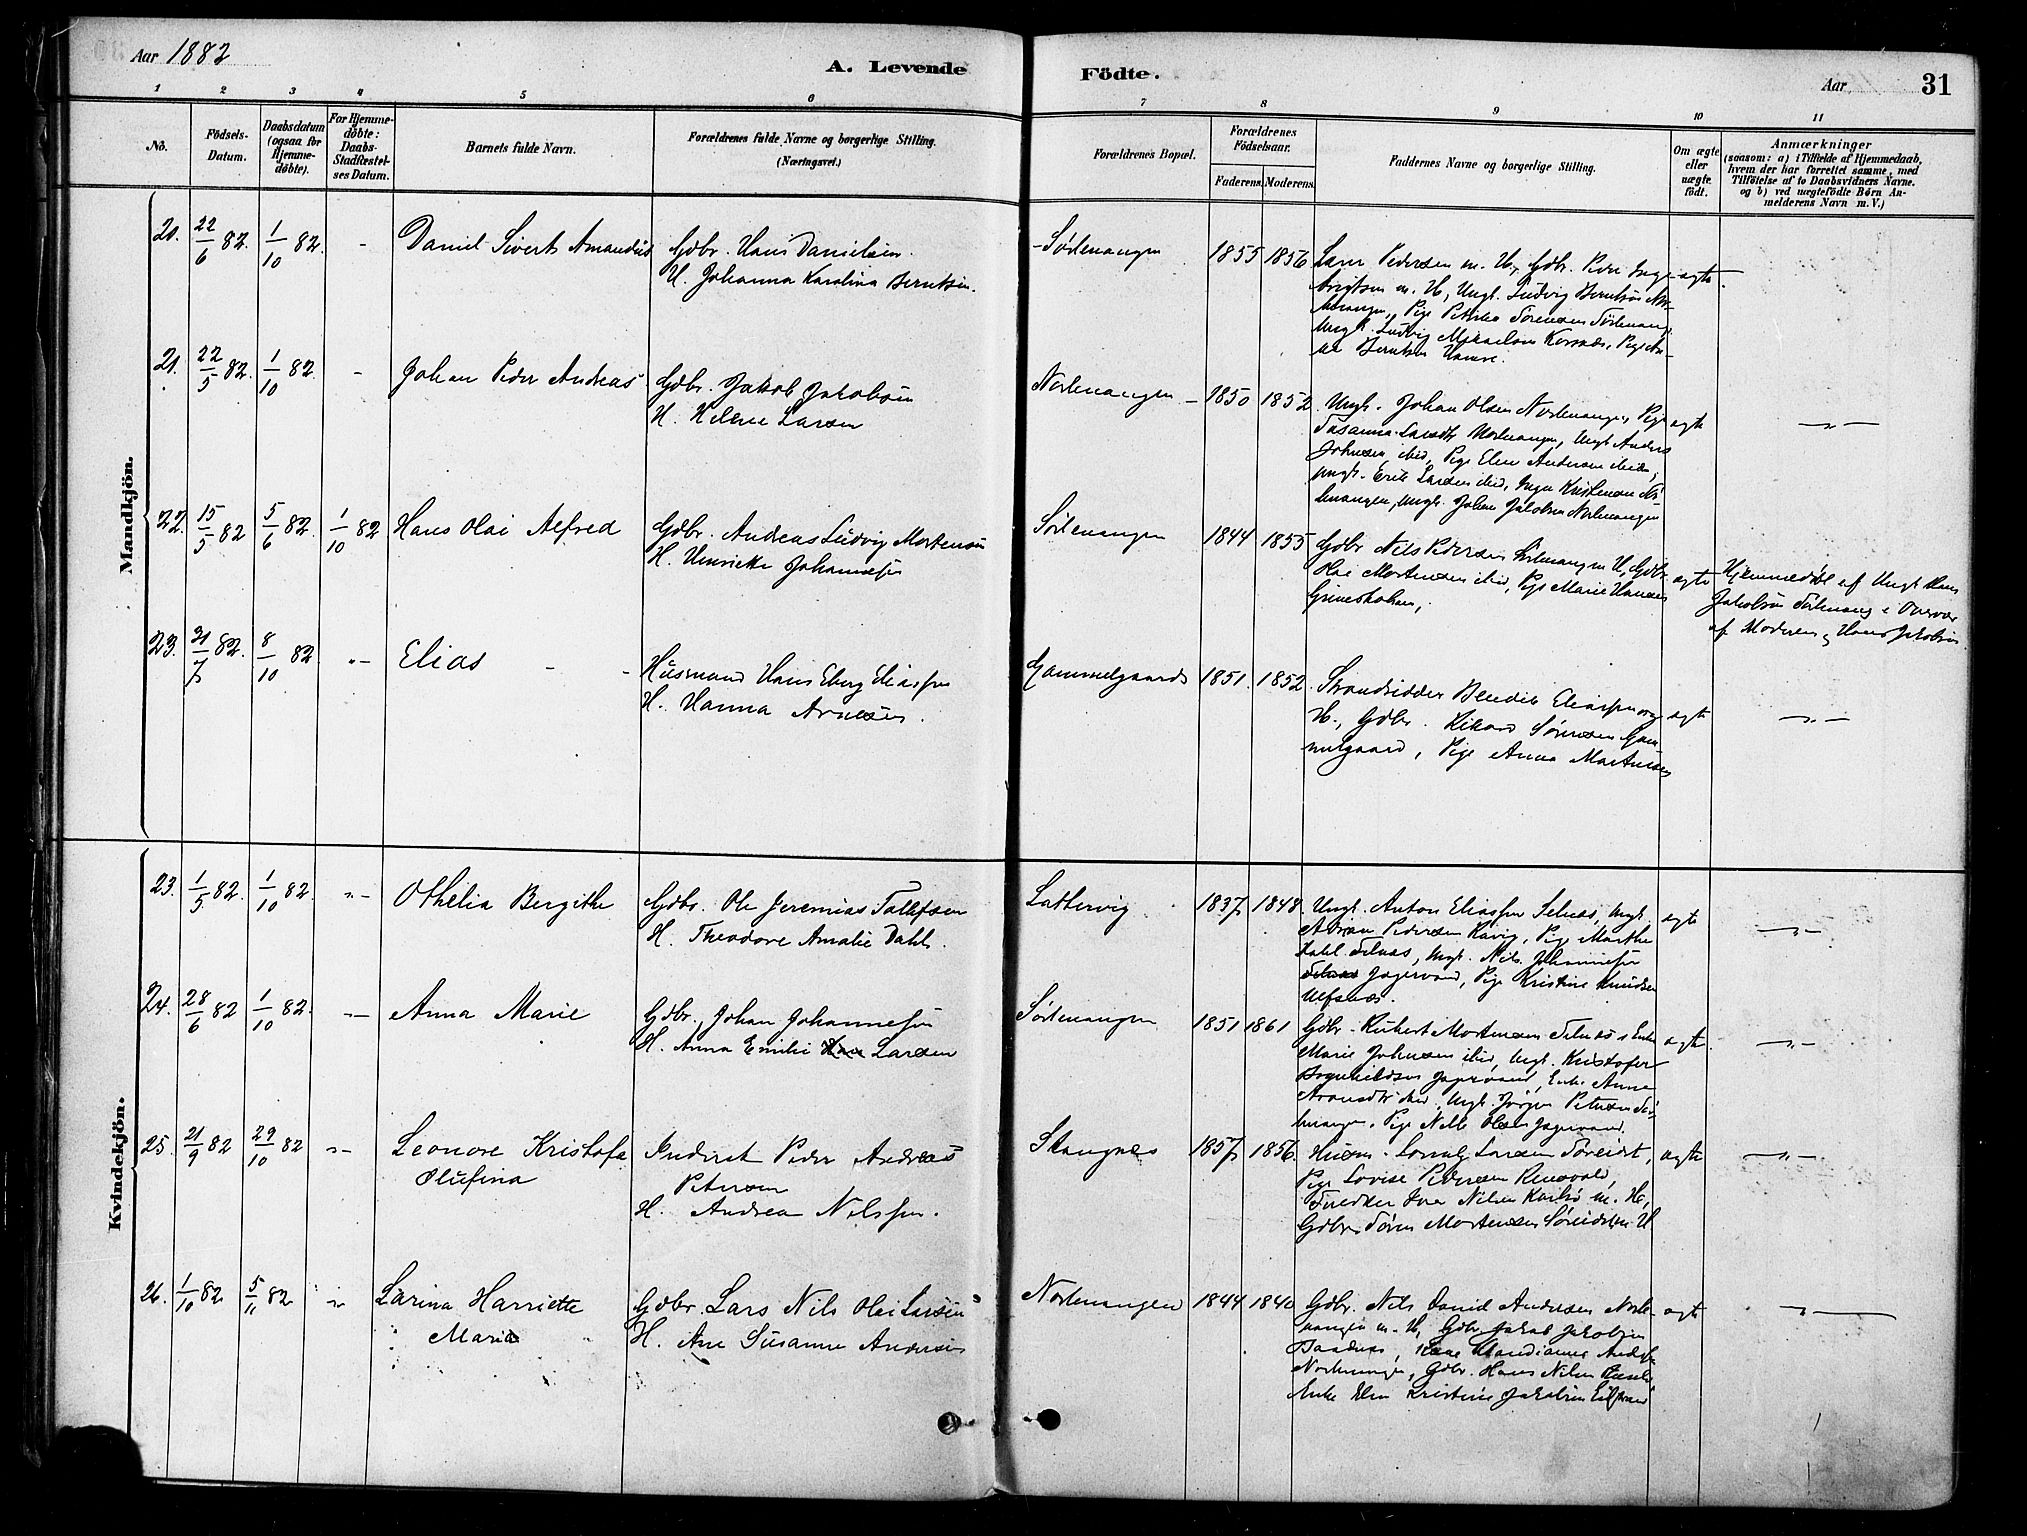 Aar 1882
A. Levende Födte.
Aar
31
1 2 3 4 5 6 7 8 9 10 11
No.
Födsels-Datum.
Daabsdatum (ogsaa for Hjemme-døbte).
For Hjemme-døbte: Daabs-Stadfæstel-ses Datum.
Barnets fulde Navn.
Forældrenes fulde Navne og borgerlige Stilling. (Næringsvei.)
Forældrenes Bopæl.
Forældrenes Födselsaar.
Faderens. Moderens.
Faddernes Navne og borgerlige Stilling.
Om ægte eller uægte født.
Anmærkninger
(saasom: a) i Tilfælde af Hjemmedaab,
hvem der har forrettet samme, med
Tilföielse af to Daabsvidners Navne.
og b) ved uægtefödte Börn An-
melderens Navn m. V.)
Mandkjön.
20. 22/6 82. 1/10 82. - Daniel Sivert Amandus
Gdbr. Hans Danielsen.
H. Johanna Karolina Berntsen.
Sörlenangen 1855 1856
Lars Pedersen m. H., Gdbr. Peder
m. H, Ungk. Ludvig Berntsen
Pige Sörensen
Ungk. Ludvig Mikaelsen Kornæs, Pige
Berntsen
ægte
21. 22/5 82. 1/10 82. - Johan Peder Andreas
Gdbr. Jakob Jakobsen
H. Helene Larsen
Nordlenangen 1850 1852
Ungk. Johan Olsen Nordlenangen, Pige
Nordlenangen, Ungk Anders
Johnsen ibid, Pige Elen Andersen ibid,
Ungk. Erik Larsen ibid, Inger Kristensen
Ungk. Johan Jakobsen Nordlenangen
ægte -"-
22. 15/5 82 5/6 82. 1/10 82 Hans Olai Alfred
Gdbr. Andreas Ludvig Mortensen
H. Henrikke Johannesen
Sörlenangen 1844 1855
Gdbr Nils Pedersen Sörlenangen m H, Gdbr
Olai Mortensen ibid, Pige Marie Hansen
ægte
Hjemmedöbt af Ungk Hans
Jakobsen i Overvær
af Moderen og Hans Jakobsen
23. 31/7 82. 8/10 82 -"- Elias
Husmand Hans Eberg Eliassen
H. Hanna Arnesen.
Gammelgaard 1851. 1852.
Strandsidder Bendik Eliassen og
H., Gdbr. Rikard Sörensen Gam-
melgaard, Pige Anna Martinsen
ægte -"-
Kvindekjön.
23. 1/5 82. 1/10 82. -"- Othelia Bergithe
Gdbr. Ole Jeremias Tollefsen
H. Theodore Amalie Dahl.
Lattervig 1837 1848.
Ungk. Anton Eliassen Selnæs, Ungk.
Pedersen Kavig, Pige Marthe
Dahl Selnæs, Ungk. Nils Johannesen
Jægervand, Pige Kristine Knudsen
Ulfsnæs.
ægte -"-
24. 28/6 82 1/10 82. -"- Anna Marie
Gdbr. Johan Johannesen
H. Anna Emilie Larsen
Sörlenangen 1851 1861
Gdbr. Mortensen Selnæs, Enke
Marie Johnsen ibid, Ungk. Kristofer
Jægervand, Enke Anne
ibid, Ungk. Jörgen Petersen
Pige Olsen Jægervand.
ægte. -"-
25. 21/9 82 29/10 82 -"- Leonore Kristofa
Olufina
Inderst Peder Andreas
Petersen
H. Andrea Nilssen.
Stangnes 1857 1856.
Larsen Söreidet,
Pige Lovise Pedersen
Snedker Nilsen Karlsö m. H,
Gdbr Sören Mortensen Söreidet m H
ægte -"-
26. 1/10 82 5/11 82 -"- Larina Harriette
Maria
Gdbr. Lars Nils Olai Larsen
H. Ane Susanne Andersen
Nordlenangen 1844 1840
Gdbr. Nils Daniel Andersen Nordle-
nangen m. H, Gdbr Jakob Jakobsen
Nordlenangen, Gdbr. Hans Nilsen
Enke Elen Kristine Jakobsen
ægte -"-